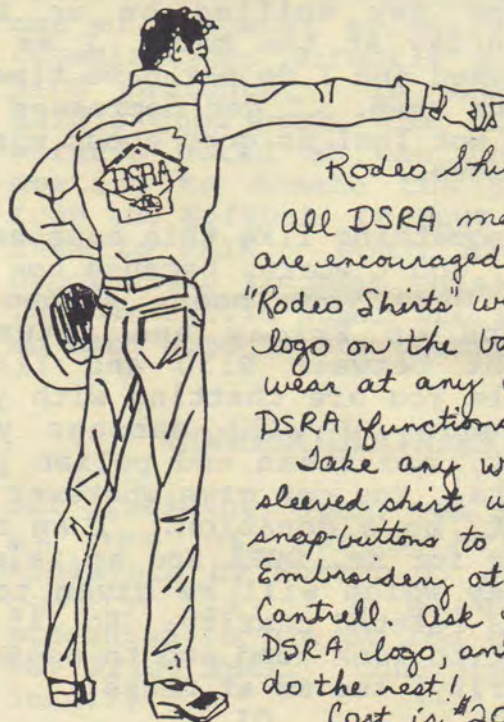 DSRA
Rodeo Shi
All DSRA me
are encouraged
"Rodeo Shirts" w
logo on the ba
wear at any
DSRA functions
Take any w
sleeved shirt w
snap-buttons to
Embroidery at
Cantrell. Ask
DSRA logo, an
do the rest!
Cost is $20